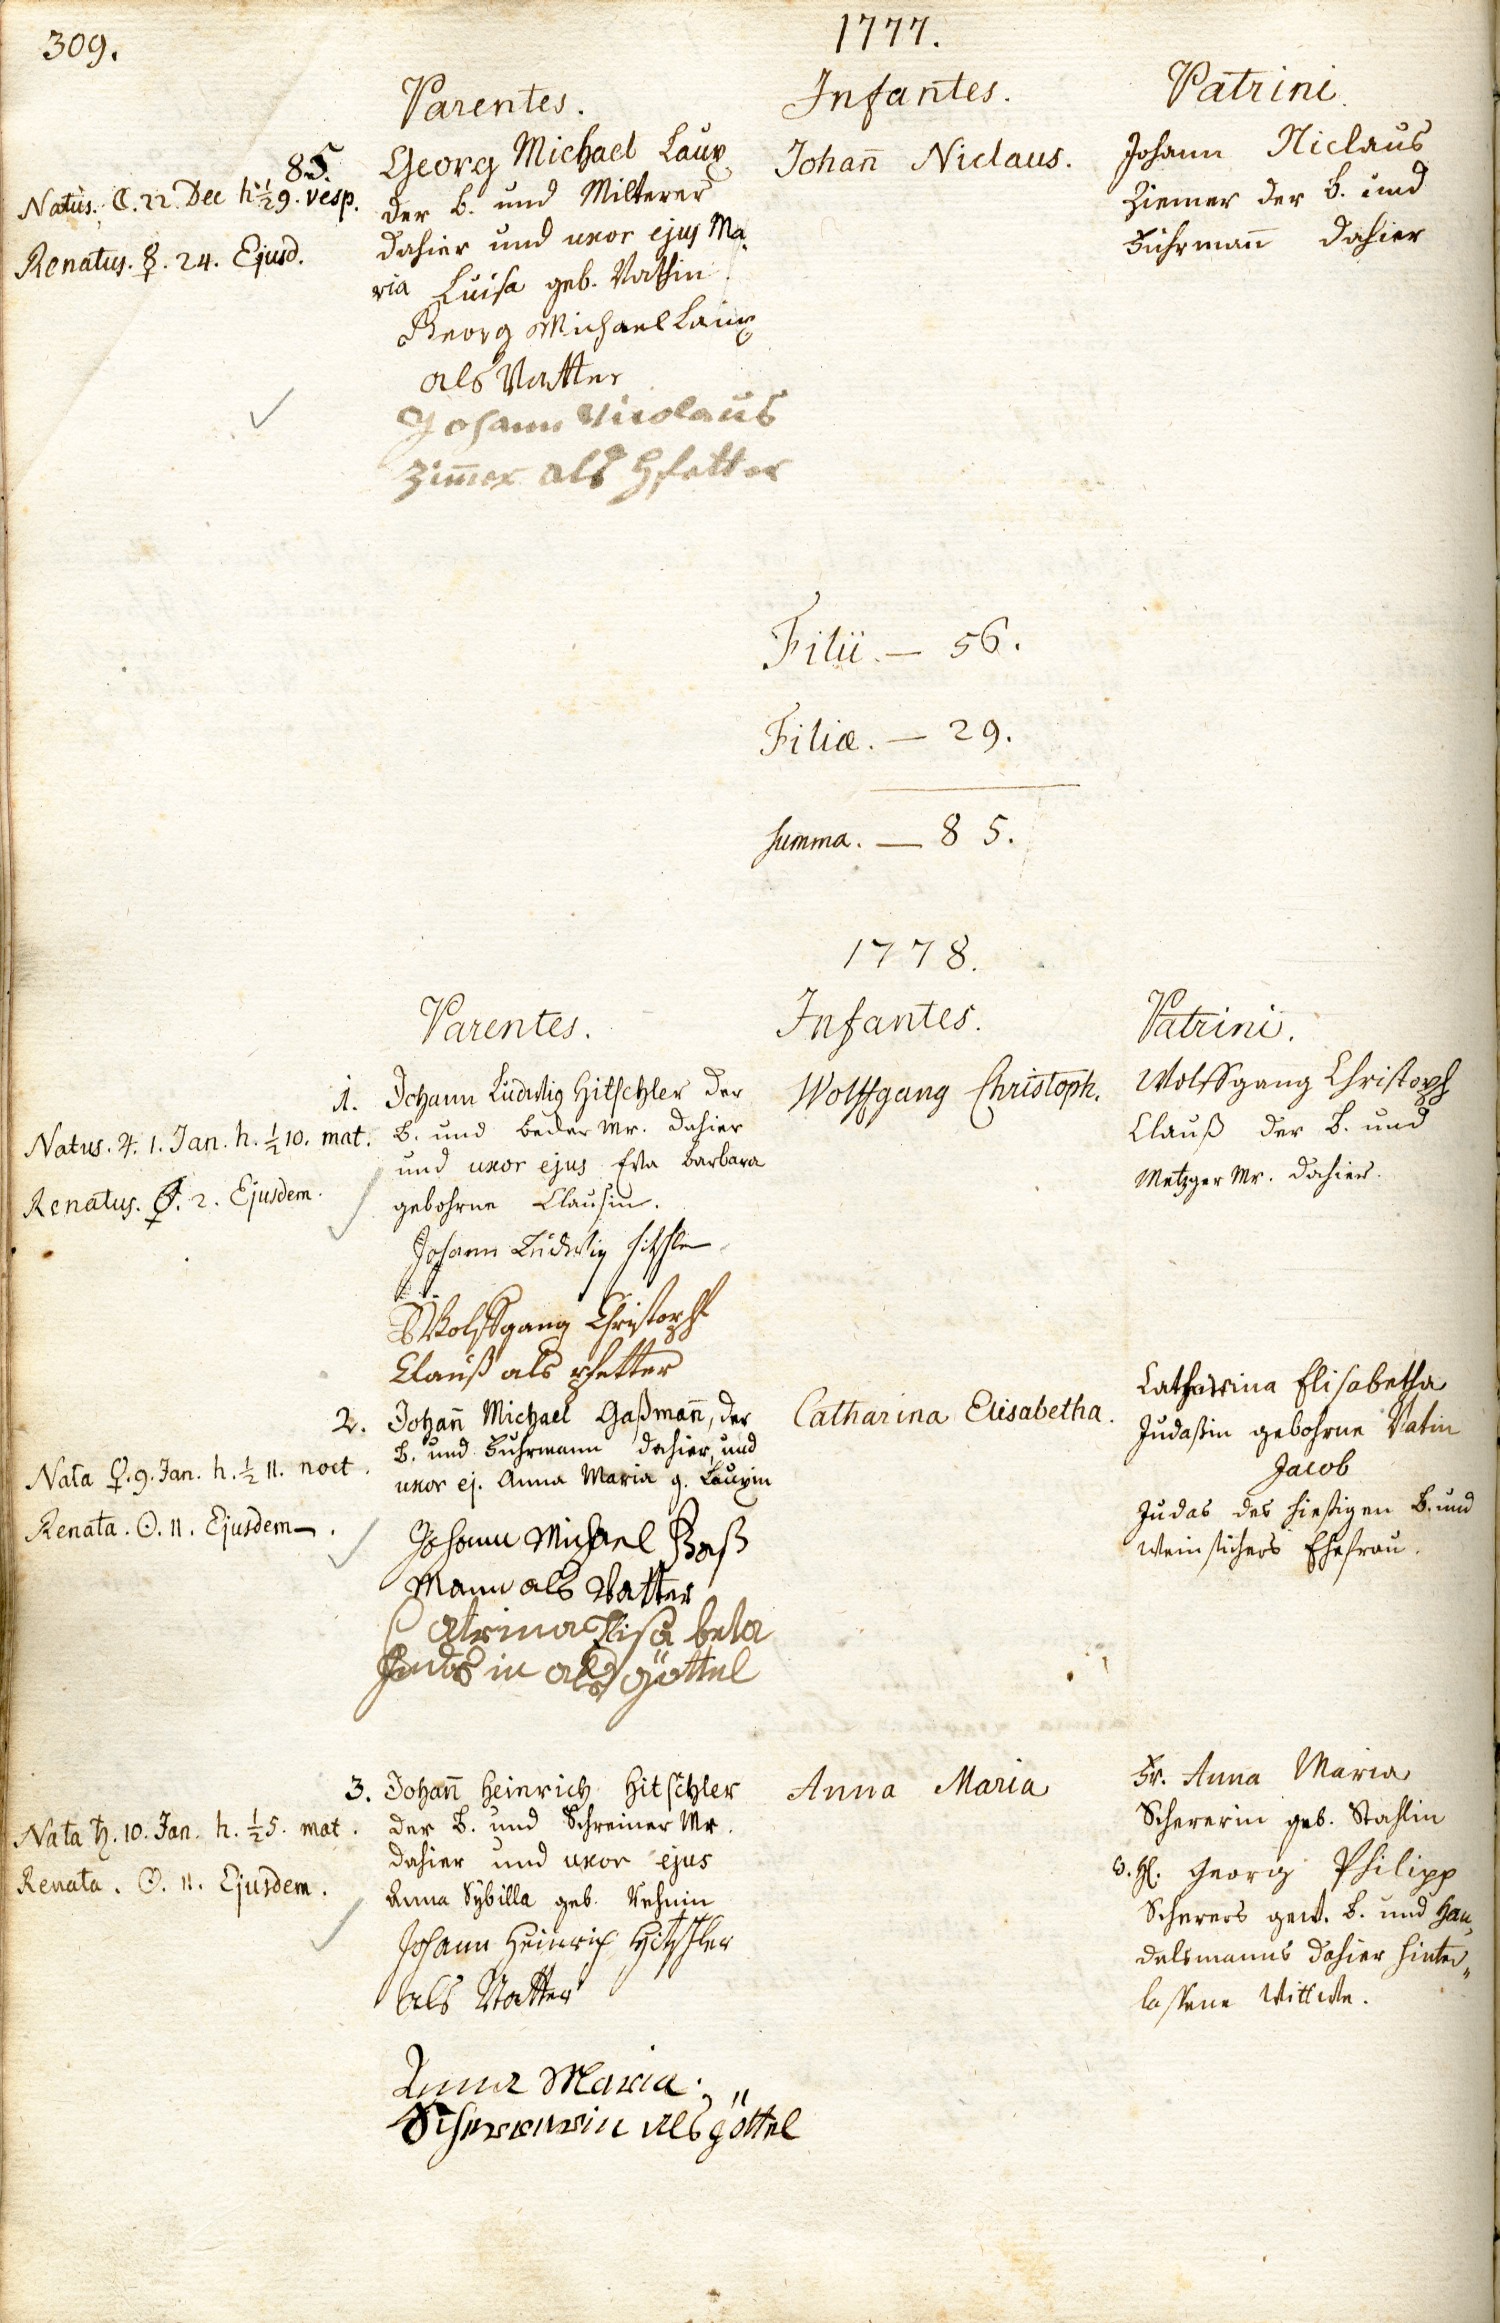 309.
1777.
Parentes.
Infantes.
Patrini.
85.
Natus. ☾. 22. Dec h. ½9. vesp.
Renatus. ☿. 24. Ejusd.
Georg Michael Laux
der b. und Milterer
dahier und uxor ejus Ma
ria Luisa geb. Vathin
Georg Michael Laux
als Vatter
Johann Nicolaus
Zim̅er als Pfetter
Johan̅ Niclaus.
Johann Niclaus
Ziemer der b. und
Fuhrman̅ dahier
Filii. — 56.
Filiæ. — 29.
Summa. — 85.
1778.
Parentes.
Infantes.
Patrini.
1.
Natus. ♃. 1. Jan. h. ½10. mat.
Renatus. ♀. 2. Ejusdem.
Johann Ludwig Hitschler der
b. und beder Mr. dahier
und uxor ejus Eva Barbara
gebohrne Clausin.
Johann Ludwig Hitschler
Wolffgang Christoph
Clauß als pfetter
Wolffgang Christoph.
Wolffgang Christoph
Clauß der b. und
Metzger Mr. dahier.
2.
Nata ♀. 9. Jan. h. ½ 11. noct.
Renata. ☉. 11. Ejusdem —.
Johan̅ Michael Gaßman̅, der
b. und Fuhrmann dahier, und
uxor ej. Anna Maria g. Lauxin
Johann Michael Gaß
mann als Vatter
Catrina Elisa beta
Judas in als göttel
Catharina Elisabetha.
Catharina Elisabetha
Judaßin gebohrne Vatin
Jacob
Judas des hiesigen b. und
Weinstichers Ehefrau.
3.
Nata ♄. 10. Jan. h. ½5. mat.
Renata. ☉. 11. Ejusdem.
Johan̅ Heinrich Hitschler
der b. und Schreiner Mr.
dahier und uxor ejus
Anna Sybilla geb. Vehnin
Johann Heinrich Hitschler
als Vatter
Anna Maria
Schererin als göttel
Anna Maria
Fr. Anna Maria
Schererin geb. Stahlin
H. Georg Philipp
Scherers gew. b. und Han„
delsmanns dahier hinter„
lassene Wittwe.